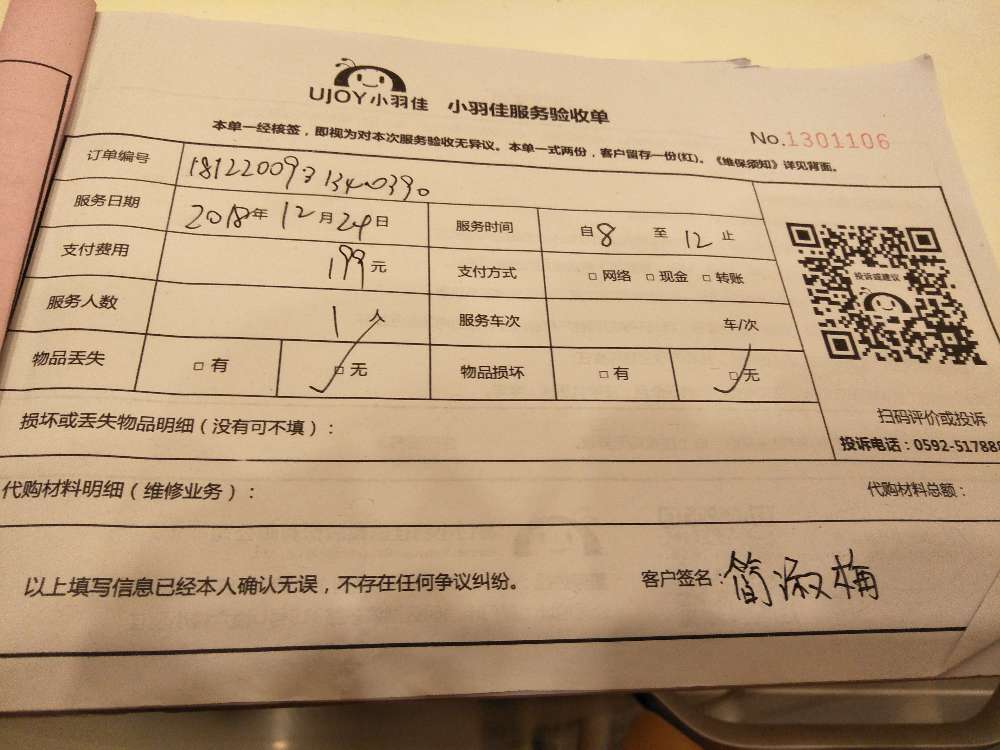 UJOY小羽佳 小羽佳服务验收单
No.1301106
本单一经核签，即视为对本次服务验收无异议。本单一式两份，客户留存一份(红)。《维保须知》详见背面。
订单编号 1812200931340390
服务日期 2018年12月24日 服务时间 自8至12止
支付费用 199元 支付方式 □网络 □现金 □转账
服务人数 1人 服务车次 车/次
物品丢失 □有 □无 物品损坏 □有 □无
投诉或建议
扫码评价或投诉
投诉电话：0592-517888
损坏或丢失物品明细（没有可不填）：
代购材料明细（维修业务）： 代购材料总额：
以上填写信息已经本人确认无误，不存在任何争议纠纷。 客户签名：简淑梅